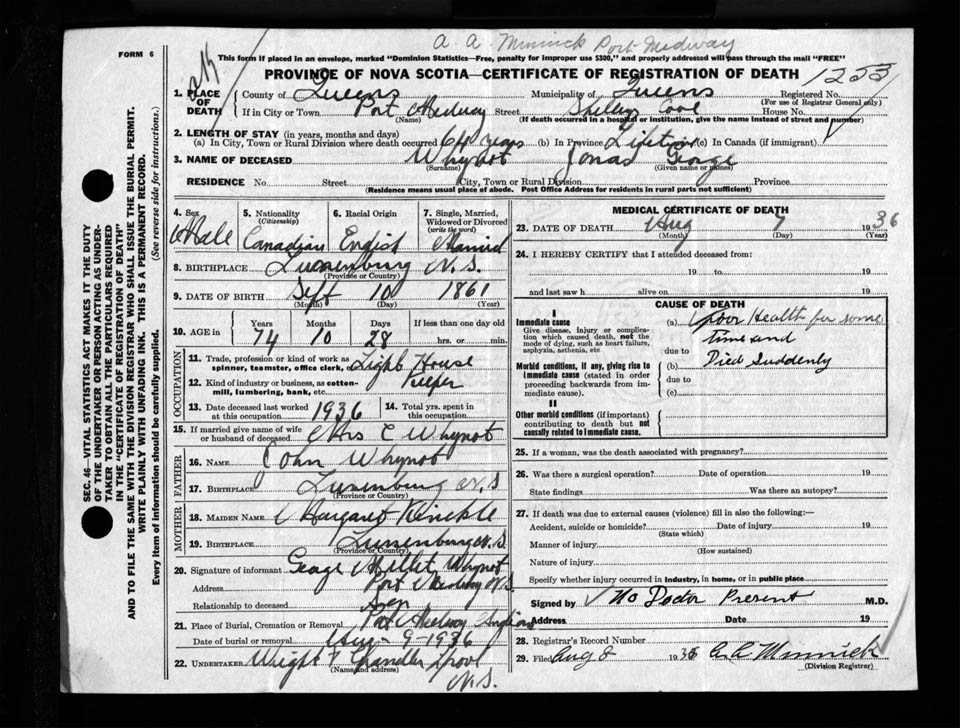 FORM 6
A. A. Minnick Port Medway
This form if placed in an envelope, marked "Dominion Statistics—Free, penalty for improper use $300," and properly addressed will pass through the mail "FREE"
PROVINCE OF NOVA SCOTIA—CERTIFICATE OF REGISTRATION OF DEATH
1253
1. PLACE OF DEATH County of Queens Municipality of Queens Registered No.
(For use of Registrar General only)
If in City or Town Port Medway Street Cove House No.
(Name) (If death occurred in a hospital or institution, give the name instead of street and number)
2. LENGTH OF STAY (in years, months and days)
(a) In City, Town or Rural Division where death occurred 64 years (b) In Province Lifetime (c) In Canada (if immigrant)
3. NAME OF DECEASED Whynot Jonas George
(Surname) (Given name or names)
RESIDENCE No. Street City, Town or Rural Division Province
(Residence means usual place of abode. Post Office Address for residents in rural parts not sufficient)
4. Sex 5. Nationality 6. Racial Origin 7. Single, Married, Widowed or Divorced
(Citizenship) (write the word)
Male Canadian English Married
8. BIRTHPLACE Lunenburg N.S.
(Province or Country)
9. DATE OF BIRTH Sept 10 1861
(Month) (Day) (Year)
10. AGE in Years Months Days If less than one day old
74 10 28 hrs. or min.
OCCUPATION
11. Trade, profession or kind of work as spinner, teamster, office clerk, Light House
12. Kind of industry or business, as cotton-mill, lumbering, bank, etc. Keeper
13. Date deceased last worked at this occupation 1936 14. Total yrs. spent in this occupation
15. If married give name of wife or husband of deceased Mrs C Whynot
FATHER
16. NAME John Whynot
17. BIRTHPLACE Lunenburg N.S
(Province or Country)
MOTHER
18. MAIDEN NAME Margaret Kinckle
19. BIRTHPLACE Lunenburg N.S.
(Province or Country)
20. Signature of informant George Whynot
Address Port Medway N.S.
Relationship to deceased Son
21. Place of Burial, Cremation or Removal Port Medway
Date of burial or removal Aug - 9 - 1936
22. UNDERTAKER Wright Chandler
(Name and address)
N.S.
MEDICAL CERTIFICATE OF DEATH
23. DATE OF DEATH Aug 7 1936
(Month) (Day) (Year)
24. I HEREBY CERTIFY that I attended deceased from:
19 to 19
and last saw h alive on 19
CAUSE OF DEATH
I
Immediate cause (a) poor Health for some
Give disease, injury or complication which caused death, not the mode of dying, such as heart failure, asphyxia, asthenia, etc.
time and
due to
Morbid conditions, if any, giving rise to immediate cause (stated in order proceeding backwards from immediate cause).
(b) Died Suddenly
due to
(c)
II
Other morbid conditions (if important) contributing to death but not causally related to immediate cause.
25. If a woman, was the death associated with pregnancy?
26. Was there a surgical operation? Date of operation 19
State findings Was there an autopsy?
27. If death was due to external causes (violence) fill in also the following:
Accident, suicide or homicide? Date of injury 19
(State which)
Manner of injury
(How sustained)
Nature of injury
Specify whether injury occurred in industry, in home, or in public place
Signed by No Doctor Present M.D.
Address Date 19
28. Registrar's Record Number
29. Filed Aug 8 1936 A. A. Minnick
(Division Registrar)
SEC. 46—VITAL STATISTICS ACT MAKES IT THE DUTY
OF THE UNDERTAKER OR PERSON ACTING AS UNDER-
TAKER TO OBTAIN ALL THE PARTICULARS REQUIRED
IN THE "CERTIFICATE OF REGISTRATION OF DEATH"
AND TO FILE THE SAME WITH THE DIVISION REGISTRAR WHO SHALL ISSUE THE BURIAL PERMIT.
WRITE PLAINLY WITH UNFADING INK. THIS IS A PERMANENT RECORD.
Every item of information should be carefully supplied. (See reverse side for instructions.)